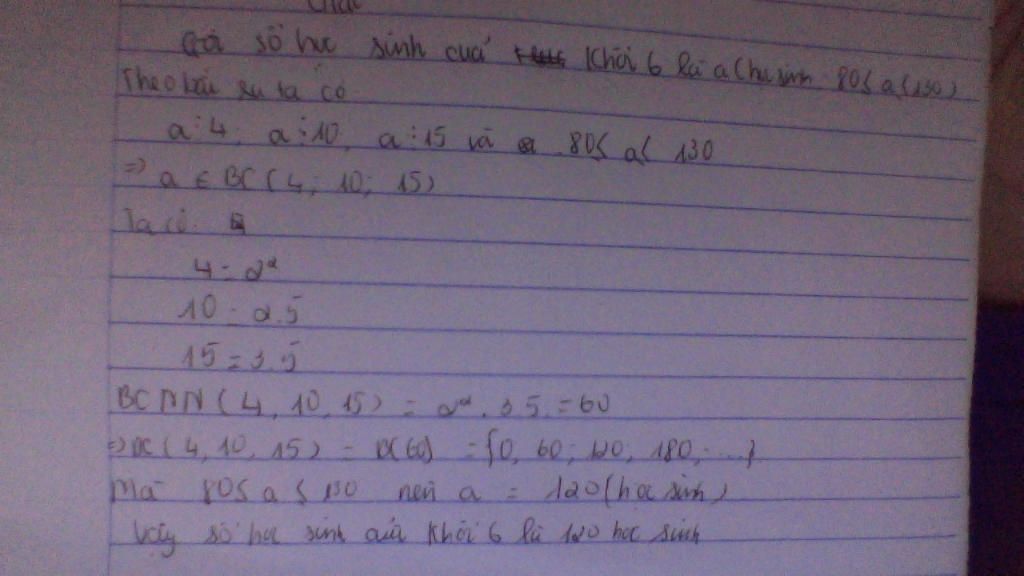 Giải
Gọi số học sinh của khối 6 là a (học sinh 80 ≤ a ≤ 130)
Theo bài ra ta có
a ⋮ 4, a ⋮ 10, a ⋮ 15 và 80 ≤ a ≤ 130
=> a ∈ BC(4; 10; 15)
Ta có.
4 = 2²
10 = 2.5
15 = 3.5
BCNN(4, 10, 15) = 2².3.5. = 60
=> BC(4, 10, 15) = B(60) = {0, 60; 120; 180; ...}
Mà 80 ≤ a ≤ 130 nên a = 120 (học sinh)
Vậy số học sinh của khối 6 là 120 học sinh